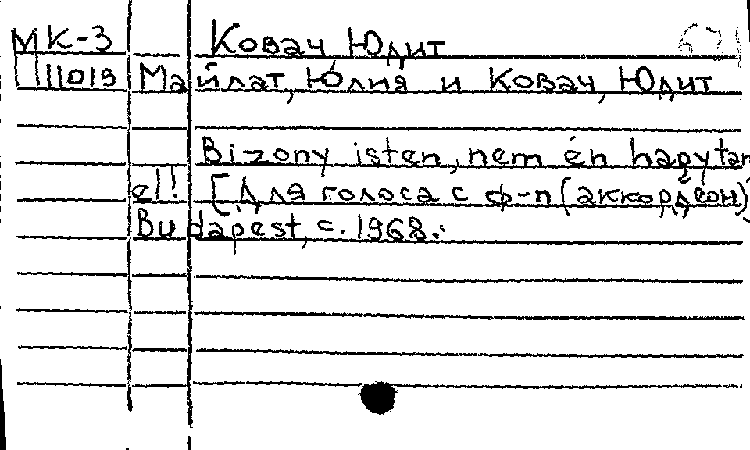 МК-3 Ковач Юдит
Майлат, Юлия и Ковач, Юдит
Bizony isten, nem én hagytam
el! [Для голоса с ф-п (аккордеон)
Budapest, c. 1968.